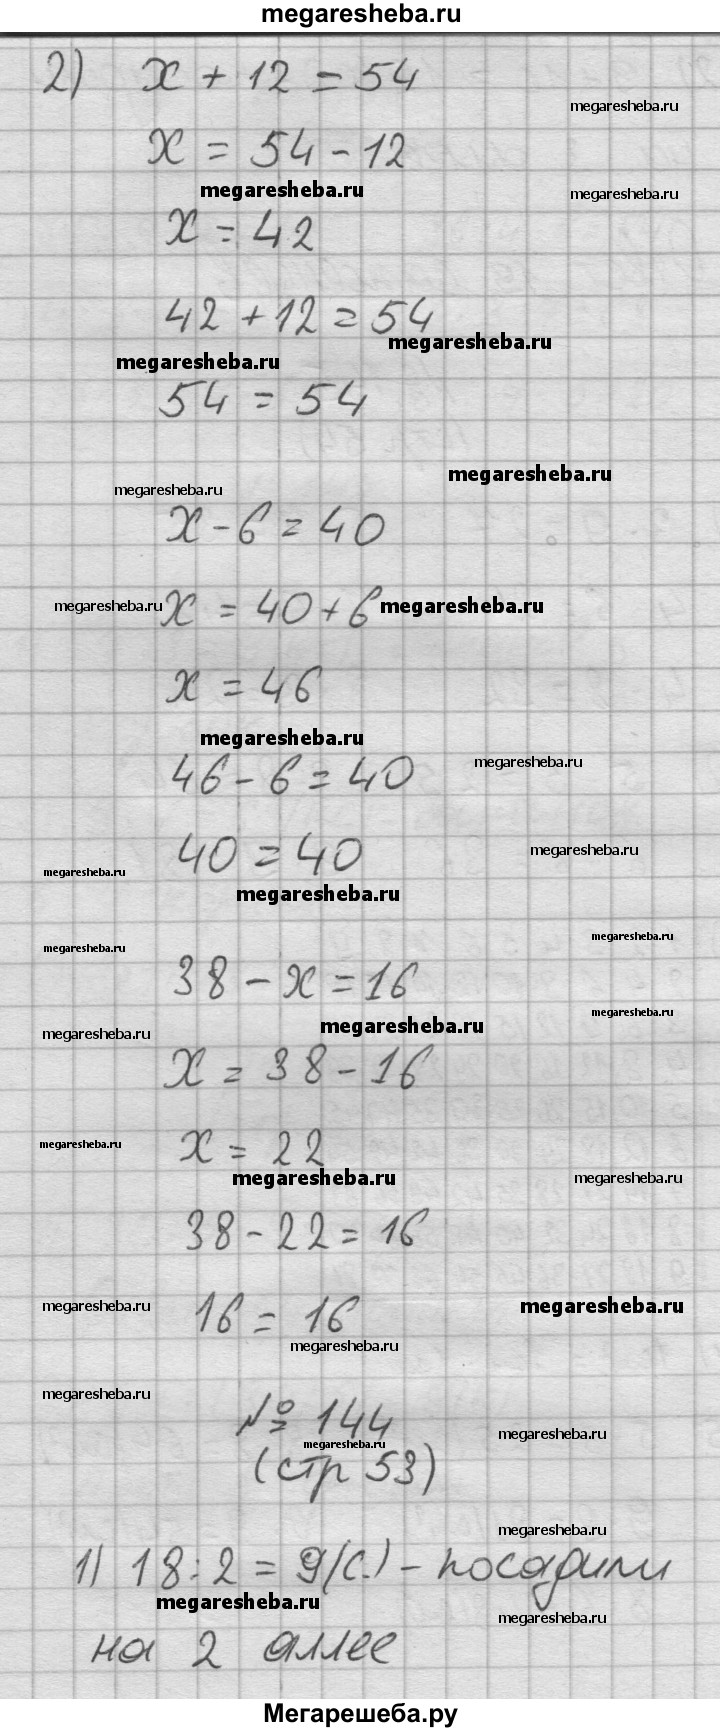 megaresheba.ru
2) x + 12 = 54
megaresheba.ru
x = 54 - 12
megaresheba.ru
megaresheba.ru
x = 42
42 + 12 = 54
megaresheba.ru
megaresheba.ru
54 = 54
megaresheba.ru
megaresheba.ru
x - 6 = 40
megaresheba.ru
x = 40 + 6
megaresheba.ru
x = 46
megaresheba.ru
megaresheba.ru
46 - 6 = 40
40 = 40
megaresheba.ru
megaresheba.ru
megaresheba.ru
megaresheba.ru
megaresheba.ru
38 - x = 16
megaresheba.ru
megaresheba.ru
megaresheba.ru
x = 38 - 16
megaresheba.ru
x = 22
megaresheba.ru
megaresheba.ru
38 - 22 = 16
megaresheba.ru
megaresheba.ru
16 = 16
megaresheba.ru
megaresheba.ru
№ 144
megaresheba.ru
megaresheba.ru
(стр 53)
megaresheba.ru
1) 18 : 2 = 9 (с.) - посадили
megaresheba.ru
megaresheba.ru
на 2 аллее
Мегарешеба.ру